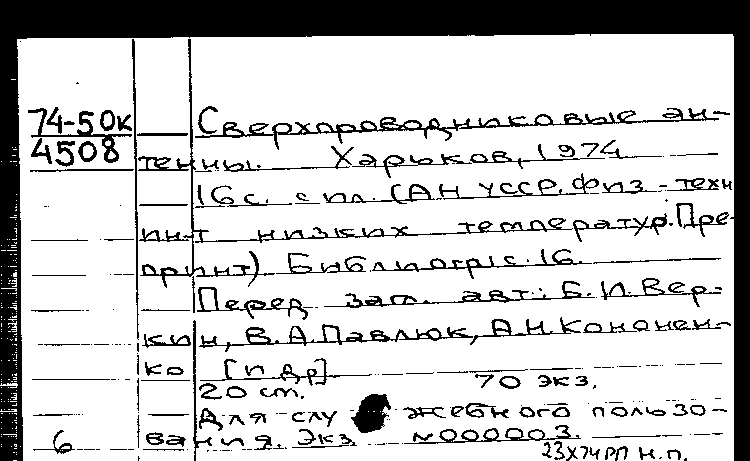 74-50к Сверхпроводниковые ан-
4508 тенны. Харьков, 1974
16 с. с ил. (АН УССР. Физ-техн
ин-т низких температур. Пре-
принт) Библиогр: с. 16.
Перед загл. авт.: Б.И. Вер-
кин, В.А. Павлюк, А.Н. Кононен-
ко [и др].
20 cm. 70 экз.
Для служебного пользо-
6 вания. Экз. №000003.
23X74РП Н.П.